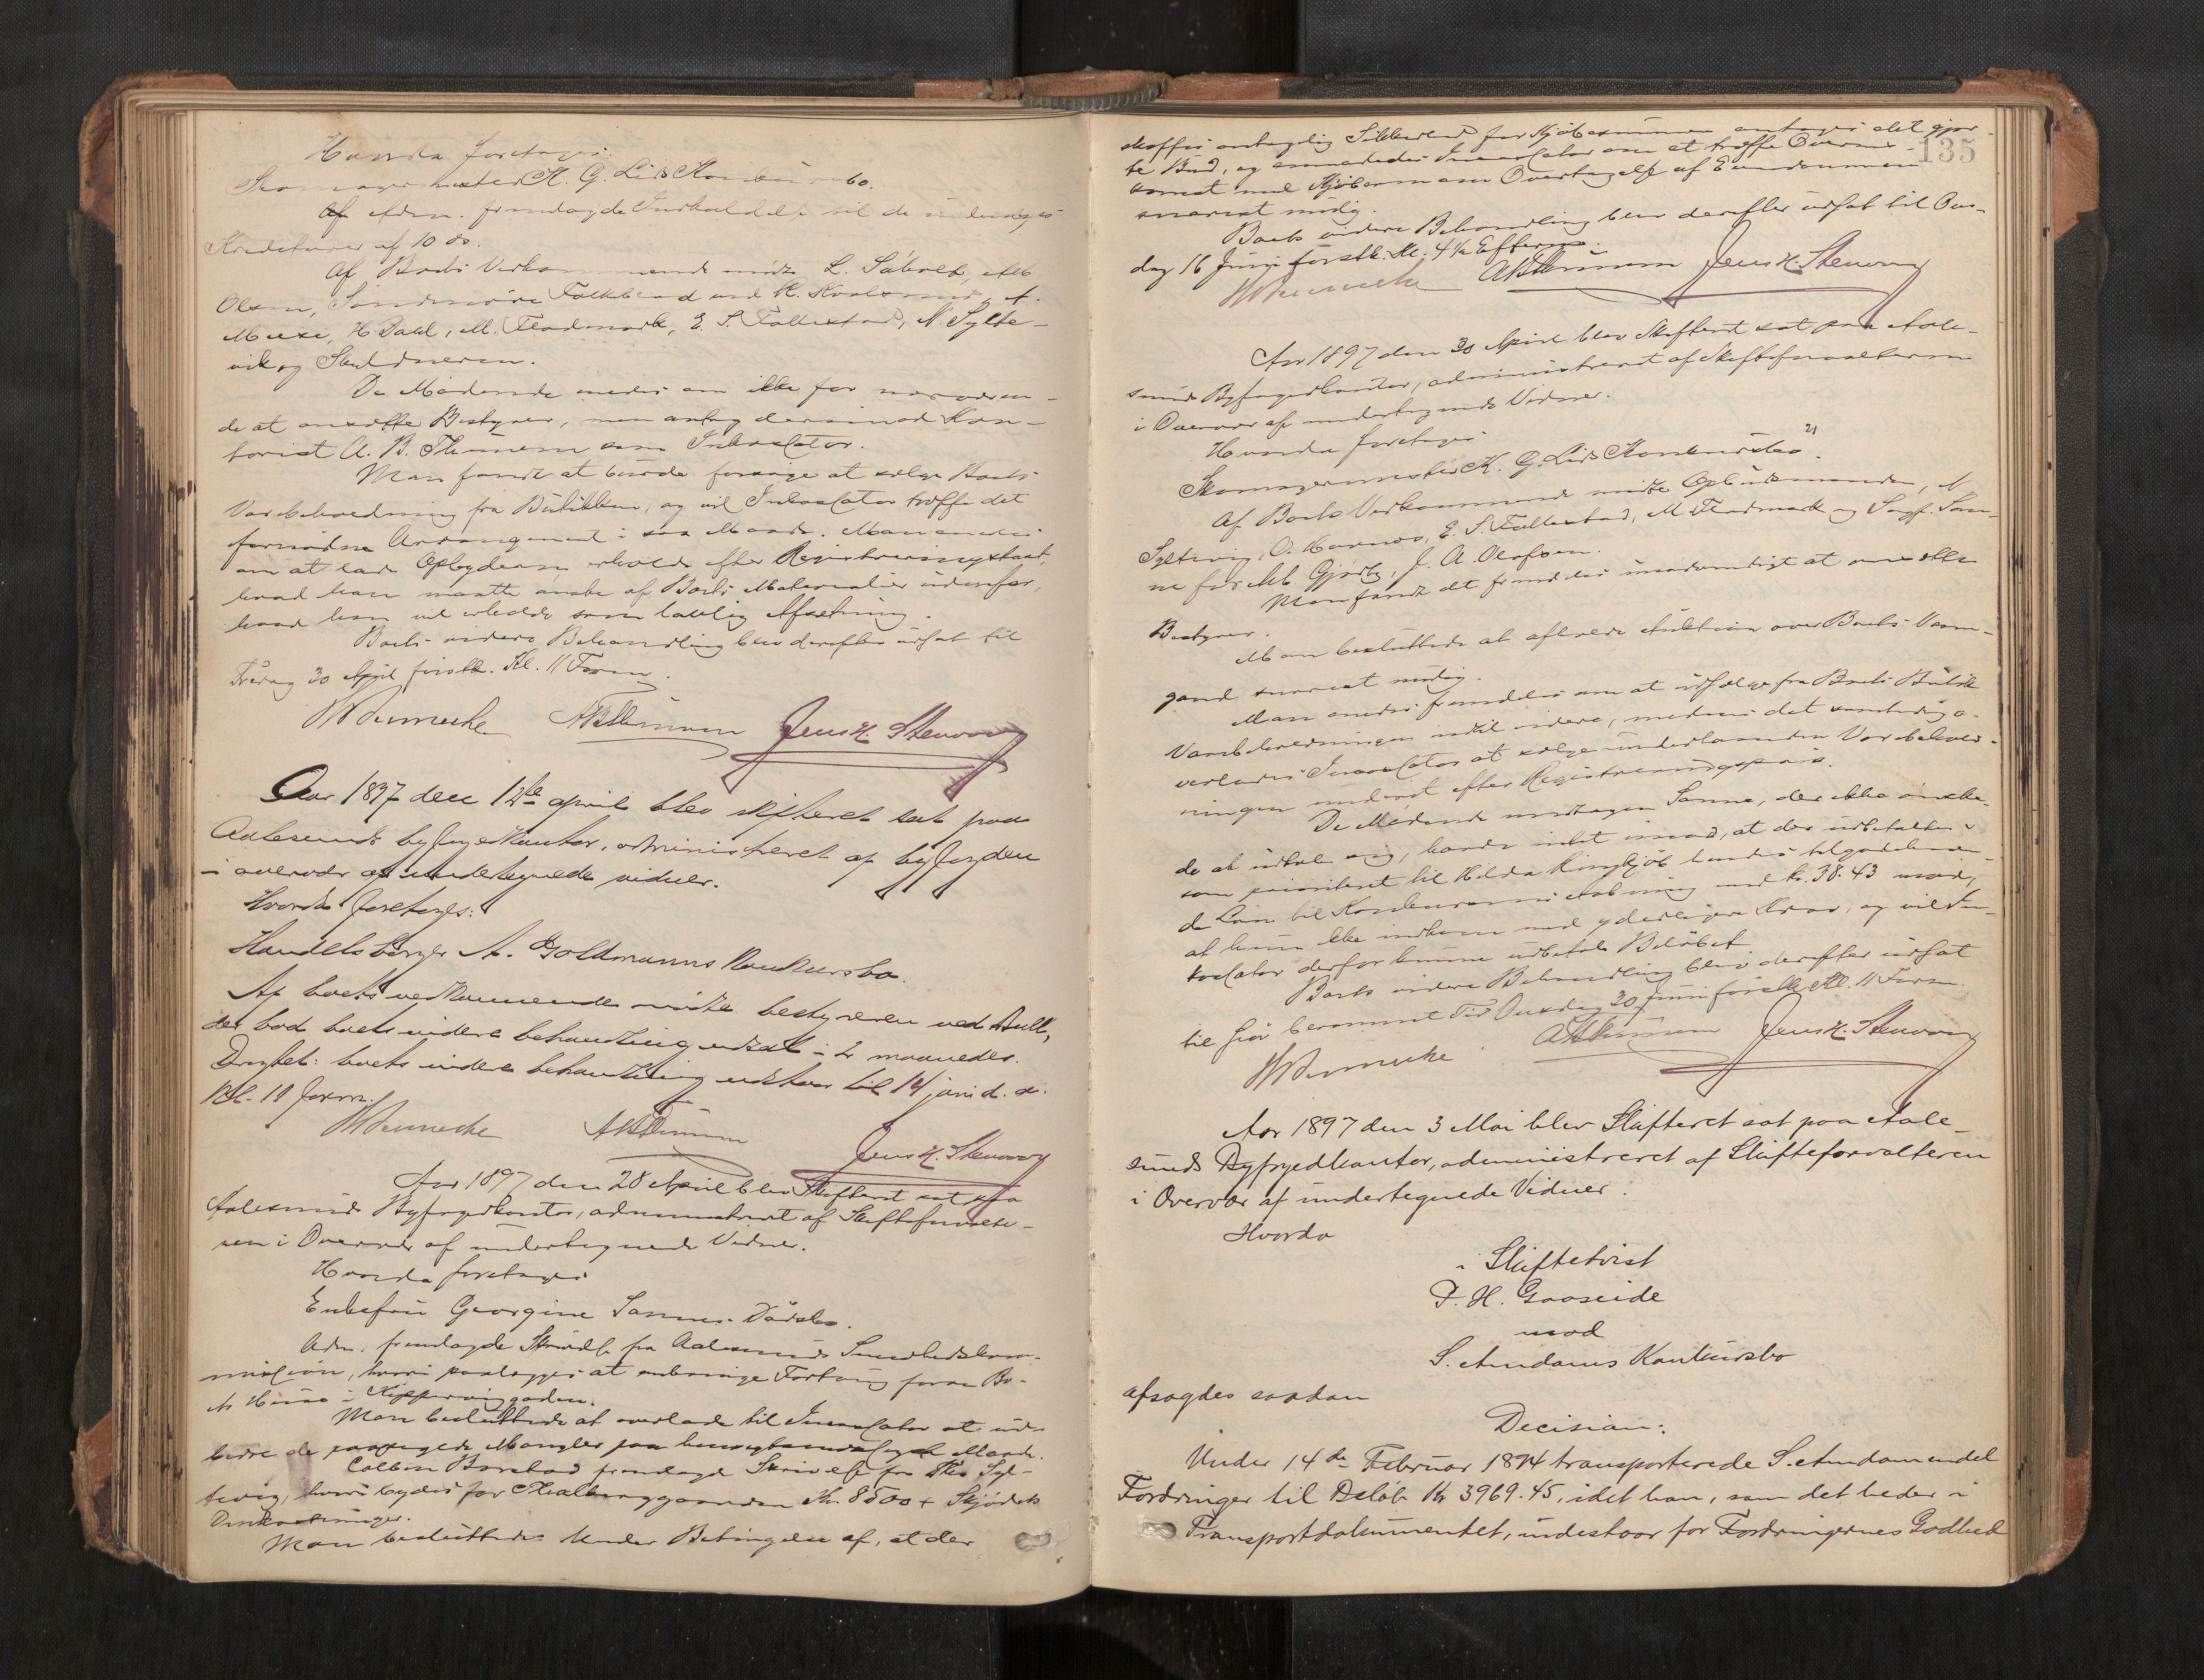 Hvorda foretoges:
Skomagermester K. G. Lids Konkursbo.
Af Adm. fremlagde Indkaldelse til de
Kreditorer af 10 ds.
Af Boets Vedkommende mødte L. Såholt,
Olsen, Søndmøre Folkeblad ved K.
H Dahl, M. Fladmark, E. S. Follestad, N. Sylte-
vik og Skyldneren.
De Mødende enedes om ikke for nærværen-
de at ansætte Bestyrer, men antog derimod Kon-
torist A. B. Thunem som Inkassator.
Man fandt at burde forsøge at sælge Boets
Varebeholdning fra Butikken, og vil Inkassator træffe det
fornødne Arrangement i saa Maade. Man enedes
om at lade Opbyderen erholde efter Registreringstaxt,
hvad han maatte ønske af Boets Materialier udenfor,
hvad han vil erholde som lovlig Afsetning.
Boets videre Behandling blev derefter udsat til
Fredag 30 April førstk. Kl. 11 Form.
ABThunem Jens K. Stenvaag
Aar 1897 den 12te april blev skifteret sat paa
Aalesunds byfogedkontor, administreret af byfogden
i overvær af undertegnede vidner.
Hvorda foretoges:
Handelsborger A. Goldmanns Konkursbo.
Af boets vedkommende mødte bestyreren ved Bull,
der bad boets videre behandling udsat i 2 maaneder.
Drøftet: boets videre behandling udstaar til 14 juni d. a.
Kl. 11 form.
ABThunem
Jens K. Stenvaag
Aar 1897 den 28 April blev Skifteret sat paa
Aalesunds Byfogedkontor, administreret af Skifteforvalte-
ren i Overvær af undertegnede Vidner.
Hvorda foretoges
Enkefru Georgine Sannes Dødsbo.
Adm. fremlagde Skrivelse fra Aalesunds Sundhedskom-
mission, hvori paalægges at anbringe Fortoug foran Bo-
ets Huus i Kipperviggaden.
Man besluttede at overlade til Inkassator at ud-
bedre de paapegede Mangler paa hensigtsmæssigst Maade.
fremlagde Skrivelse fra Syl-
tevig, hvori bydes for Kr. 8500 + Skjødets
Omkostninger.
Man besluttede Under Betingelse af, at der
135
skaffes antagelig Sikkerhed for Kjøbesummen antages det gjor-
te Bud, og anmodedes Inkassator om at træffe Overens-
komst med Kjøberen om Overtagelse af Eiendommen
snarest mulig.
Boets videre Behandling blev derefter udsat til Ons-
dag 16 Juni førstk. Kl. 4½ Efterm.
ABThunem Jens K. Stenvaag
Aar 1897 den 30 April blev Skifteret sat paa Aale-
sunds Byfogedkontor, administreret af Skifteforvalteren
i Overvær af undertegnede Vidner.
Hvorda foretoges
Skomagermester K. G. Lids Konkursbo.
Af Boets Vedkommende mødte Opbudsmanden, N
Syltevig, O. E. S. Follestad, M Fladmark og Sagf. San-
ne for J. A. Olafsen.
Man fandt det fremdeles unødvendigt at ansætte
Bestyrer.
Man besluttede at afholde Auktion over Boets Vare-
gand snarest mulig.
Man enedes fremdeles om at udsælge fra Boets Butik
Varebeholdningen indtil videre, medens det samtidig o-
verlades Inkassator at sælge underhaanden Varebehold-
ningen underet efter Registreringspris.
De Mødende undtagen Sanne, der ikke ønske-
de at udtale sig, havde intet imod, at der udbetaltes
som prioriteret til Hilda Ringkjøb hendes tilgodehaven-
de Løn til Konkursens Aabning med kr. 38.43 mod,
at hun ikke indkom med yderligere Krav, og vil In-
kassator derfor kunne udbetale Beløbet.
Boets videre Behandling blev derefter udsat
til før berammet Tid Onsdag 30 Juni førstk. Kl. 11 Form.
ABThunem Jens K. Stenvaag
Aar 1897 den 3 Mai blev Skifteret sat paa Aale-
sunds Byfogedkontor, administreret af Skifteforvalteren
i Overvær af undertegnede Vidner.
Hvorda
i Skiftetvist
P. H. Gaaseide
mod
S. Amdams Konkursbo
afsagdes saadan
Decision:
Under 14de Februar 1894 transporterede S. Amdam endel
Fordringer til Beløb Kr 3969.45, idet han, som det heder i
Transportdokumentet, indestaar for Fordringernes Godhed